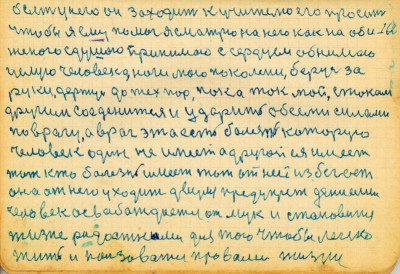 он заходит к учителю его просить
чтобы я ему помог я смотрю на него как на оби 162
принимаю с сердцем обнимаю
человека одного моего поколени, беру за
руки, держу до тех пор, пока ток мой, с током
другим соединится и ударит обоеми силами
по врагу, а враг эта есть болезнь которую
человек один не имеет а другой ея имеет
тот кто болезнь имеет тот от ней избегает
она от него уходит двери
человек освабаждается от мук и становится
жизне радостным для того чтобы легко
жить и ползоватся правами жизни